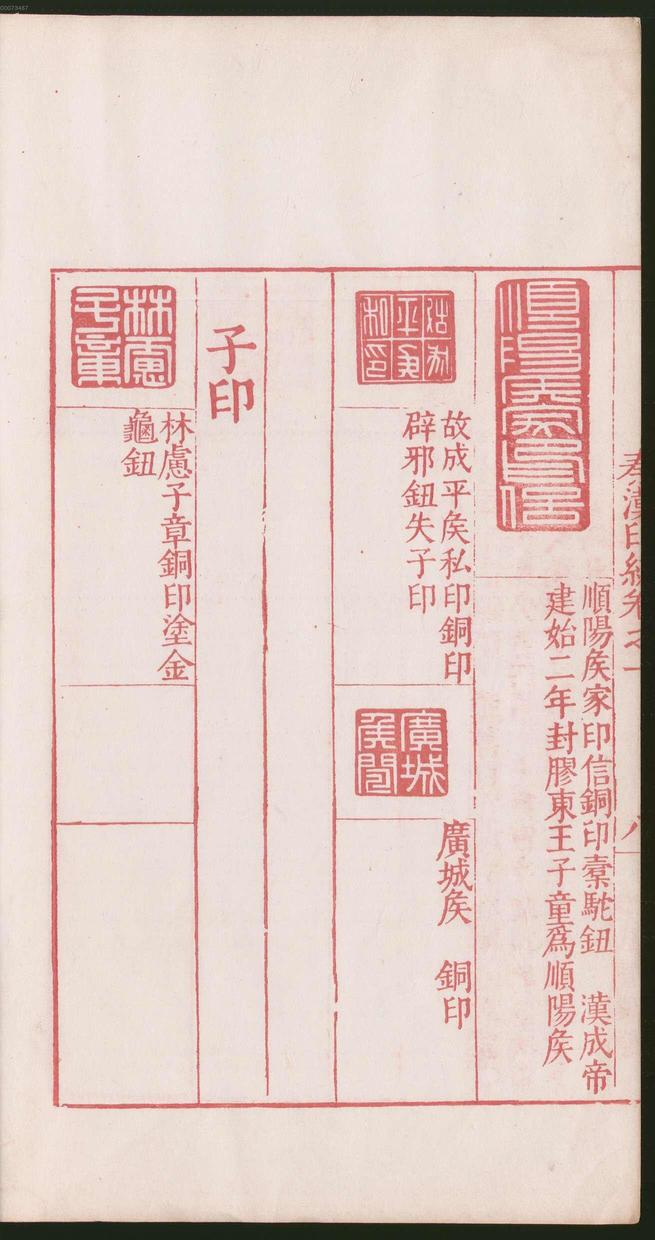 00073467
秦漢印統卷之一
八
順陽矦家印信
順陽矦家印信銅印橐駝鈕 漢成帝
建始二年封膠東王子童爲順陽矦
故成平矦私印
故成平矦私印銅印
辟邪鈕失子印
廣城矦
廣城矦 銅印
子印
林慮子章
林慮子章銅印塗金
龜鈕